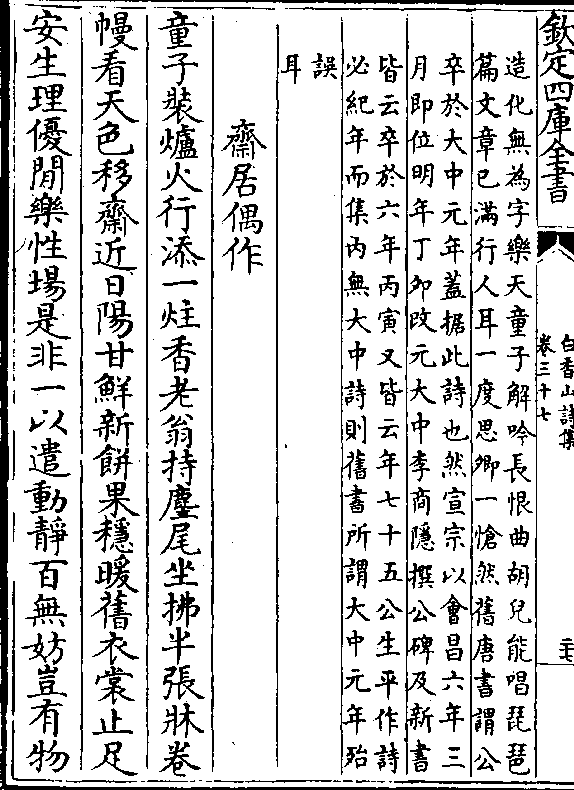 欽定四庫全書
白香山詩集
卷三十七
二七
造化無為字樂天童子解吟長恨曲胡兒能唱琵琶
篇文章已滿行人耳一度思卿一愴然舊唐書謂公
卒於大中元年蓋據此詩也然宣宗以會昌六年三
月即位明年丁夘改元大中李商隱撰公碑及新書
皆云卒於六年丙寅又皆云年七十五公生平作詩
必紀年而集內無大中詩則舊書所謂大中元年殆
誤
耳
齋居偶作
童子裝爐火行添一炷香老翁持麈尾坐拂半張牀卷
幔看天色移齋近日陽甘鮮新餅果穩暖舊衣裳止足
安生理優閒樂性場是非一以遣動靜百無妨豈有物